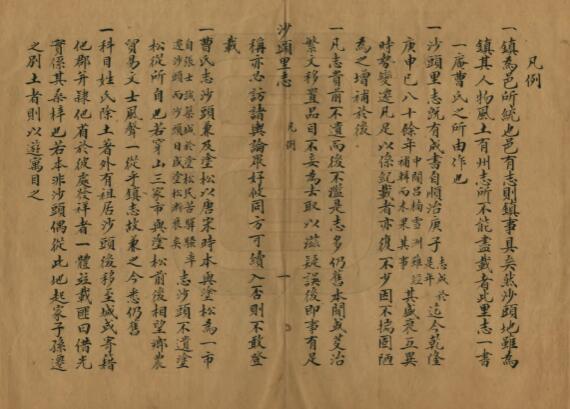 凡例
一鎮為邑所統也邑有志則鎮事具矣然沙頭地雖為
鎮其人物風土有州志所不能盡載者此里志一書
一庵曹氏之所由作也
一沙頭里志既有成書自順治庚子志成於是年迄今乾隆
庚申已八十餘年中間呂梅雪洲雖經補輯而未果其事其盛衰互異
時勢變遷凡足以係紀載者亦復不少固不揣固陋
為之增補於後
一凡志貴前不遺而後不濫是志多仍舊本間或芟治
繁文移置品目不妄為去取以滋疑誤後即事有足
沙頭里志
凡例
一
稱亦必訪諸輿論眾好攸同方可續入否則不敢登
載
一曹氏志沙頭兼及塗松以唐宋時本與塗松為一市
自張士誠築城於塗松民苦驛騷率遷沙頭而沙頭日成塗松漸衰矣志沙頭不遺塗
松從所自也若穿山三家市與塗松前後相望鄉農
貿易文士風聲一從乎鎮志故兼之今悉仍舊
一科目姓氏除土著外有祖居沙頭後移至城或寄籍
他郡并隸他省於彼處發祥者一體並載匪曰借光
實係其桑梓也若本非沙頭偶從此地起家子孫遷
之別土者則以遊寓目之